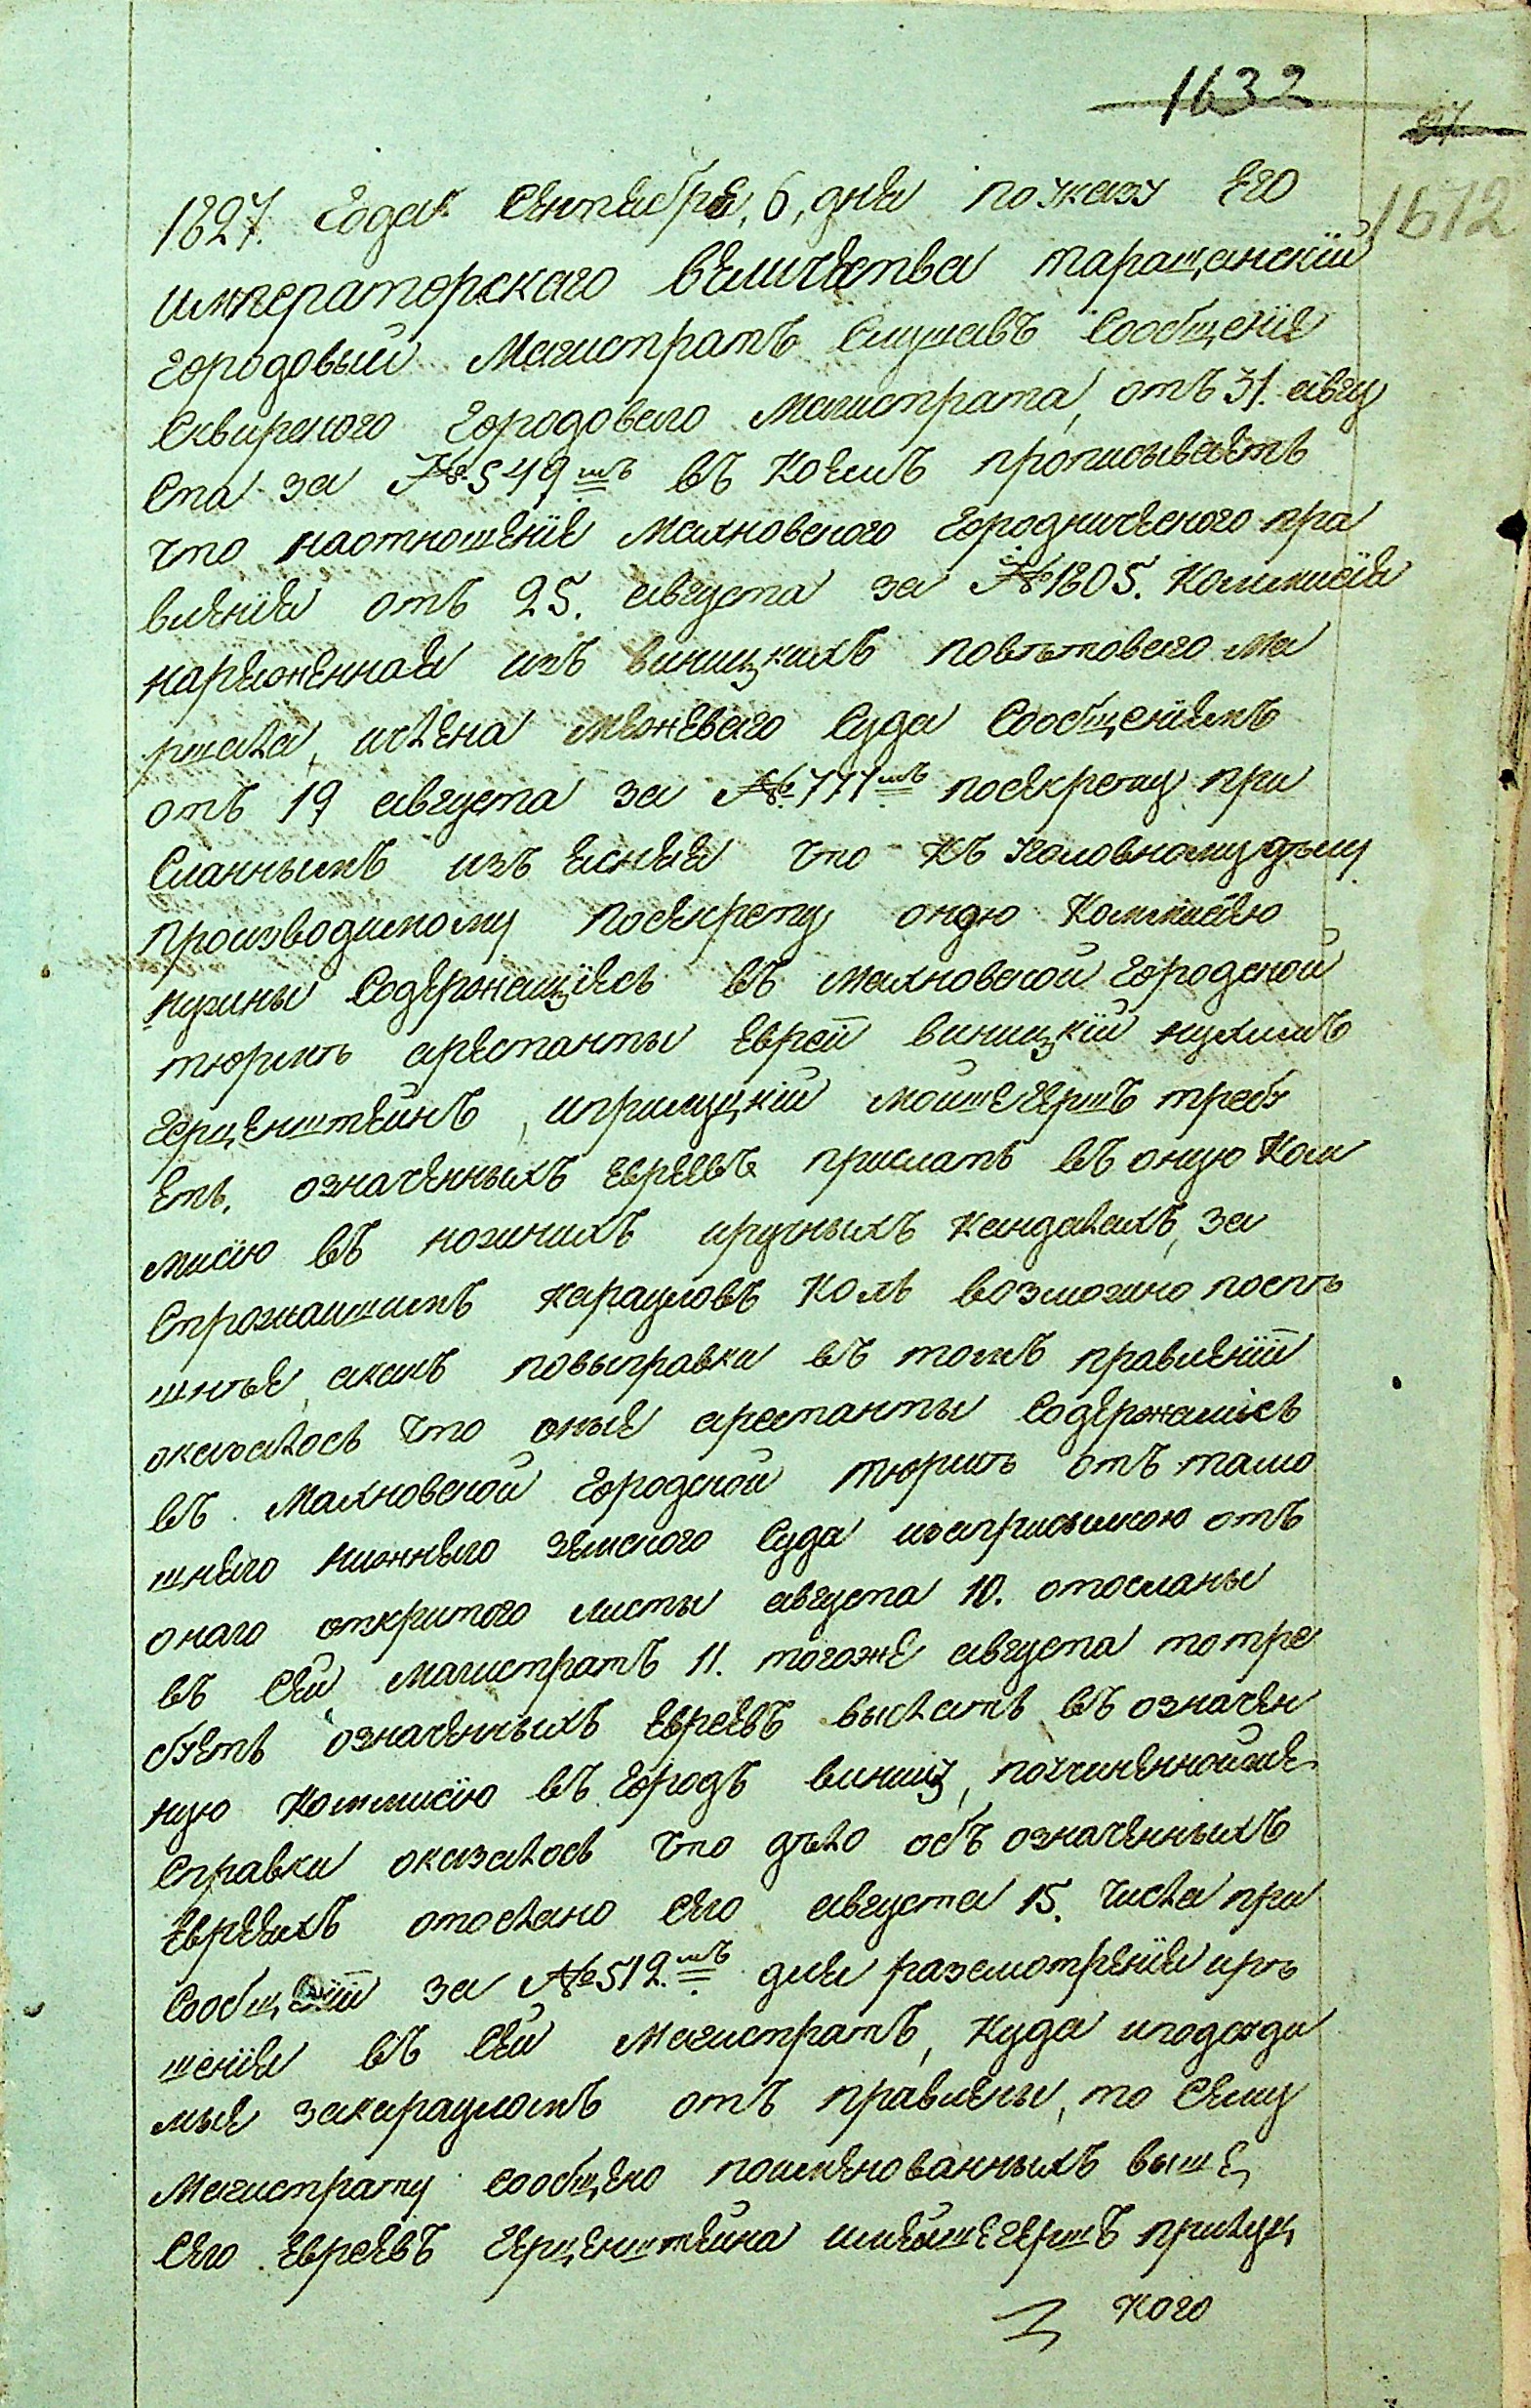 1632
27
1612
1827. Года Сентября, 6, дня по указу Его
императорскаго величества таращанскій
городовый Магистратъ Слушавъ Сообщеніе
Сквирского Городового Магистрата, отъ 31. авгу
Ста за № 549 мъ въ Коемъ прописываетъ
что наотношеніе Махновского Городнического пра
вленія отъ 25. августа за № 1805. Коммисія
наряженная изъ виницкихъ повѣтового Ма
ршала, ичлена Межеваго Суда Сообщеніемъ
отъ 19 августа за № 777 мъ посекрету при
Сланнымъ изъ ясняя что къ уголовному дѣлу
производимому посекрету оною Коммисіею
нужны Содержащіесь въ Махновской Городской
тюрмѣ арестанты Еврей виницкій нухимъ
Герценштейнъ, иприлуцкій Мойше Гершъ требу
етъ, означенныхъ евреевъ прислать въ оную Ком
мисію въ ножнихъ иручныхъ кандалахъ, за
Строжаишимъ карауловъ Коль возможно поспѣ
шнѣе, акакъ повыправки въ томъ правленіи
оказалось что оные арестанты Содержались
въ Махновской Городской тюрмѣ отъ тамо
шнего нижнего земского Суда изаприсылкою отъ
онаго откритого листы августа 10. отосланы
въ Сей Магистратъ 11. тогоже августа то тре
буетъ означенныхъ Евреевъ выслать въ означен
ную Коммисію въ Городъ виницу, починеннойже
Справки оказалось что дѣло объ означенныхъ
Евреяхъ отослано Сего августа 15. числа при
Сообщеніи за № 512. мъ для разсмотренія ирѣ
шенія въ Сей Магистратъ, куда иподсуди
мые закарауломъ отъ правлены, то Сему
Магистрату Сообщено поименованныхъ выше
Сего Евреевъ Герценштейна имейше Гершъ прилуц
кого